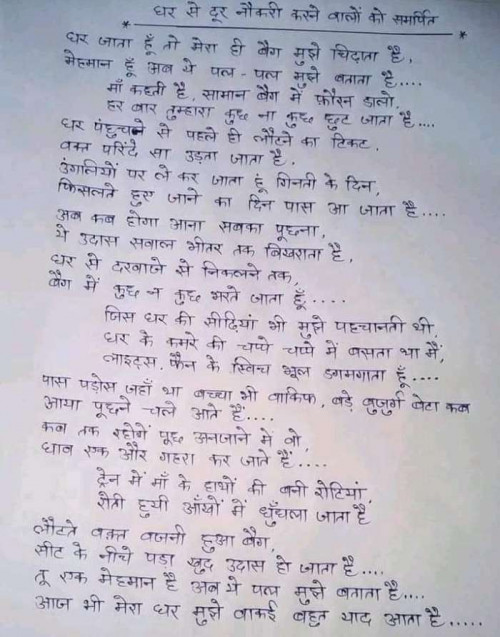 घर से दूर नौकरी करने वालों को समर्पित
घर जाता हूँ तो मेरा ही बैग मुझे चिढ़ाता है,
मेहमान हूँ अब ये पल-पल मुझे बताता है....
माँ कहती है, सामान बैग में फ़ौरन डालो,
हर बार तुम्हारा कुछ ना कुछ छुट जाता है....
घर पंहुचने से पहले ही लौटने का टिकट,
वक़्त परिंदे सा उड़ता जाता है,
उंगलियों पर ले कर जाता हूं गिनती के दिन,
फिसलते हुए जाने का दिन पास आ जाता है....
अब कब होगा आना सबका पूछना,
ये उदास सवाल भीतर तक बिखराता है,
घर से दरवाजे से निकलने तक,
बैग में कुछ न कुछ भरते जाता हूँ....
जिस घर की सीढ़ियां भी मुझे पहचानती थी,
घर के कमरे की चप्पे चप्पे में बसता था मैं,
लाइट्स, फ़ैन के स्विच भूल डगमगाता हूँ....
पास पड़ोस जहाँ था बच्चा भी वाकिफ, बड़े बुजुर्ग बेटा कब
आया पूछने चले आते हैं....
कब तक रहोगें पूछ अनजाने में वो,
घाव एक और गहरा कर जाते हैं....
ट्रेन में माँ के हाथों की बनी रोटियां,
रोती हुयी आँखों में धुँधला जाता है
लौटते वक़्त वजनी हुआ बैग,
सीट के नीचे पड़ा खुद उदास हो जाता है....
तू एक मेहमान है अब ये पल मुझे बताता है....
आज भी मेरा घर मुझे वाकई बहुत याद आता है.....